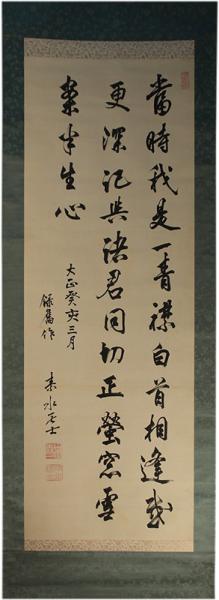 當時我是一青襟白首相逢感
更深記與諸君同切正螢窓雪
案半生心
大正癸亥三月
録舊作